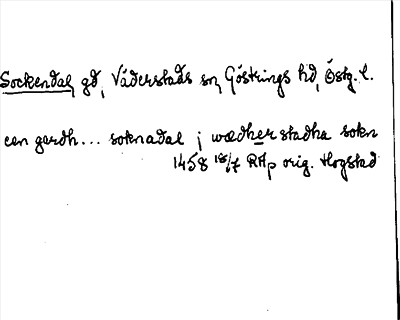 Sockendal, gd, Väderstads sn, Göstrings hd, Östg. l.
een gardh... soknadal j wædherstadha sokn
1458 18/7 RAp orig. Hogstad